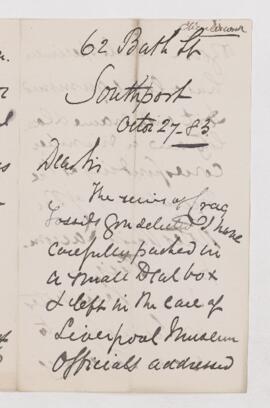 62 Bath St
Southport
Octr 27 - 83
Dear Sir
The series of Crag
Fossils you I have
carefully packed in
a small Deal box
& left in the care of
Liverpool Museum
Officials addressed